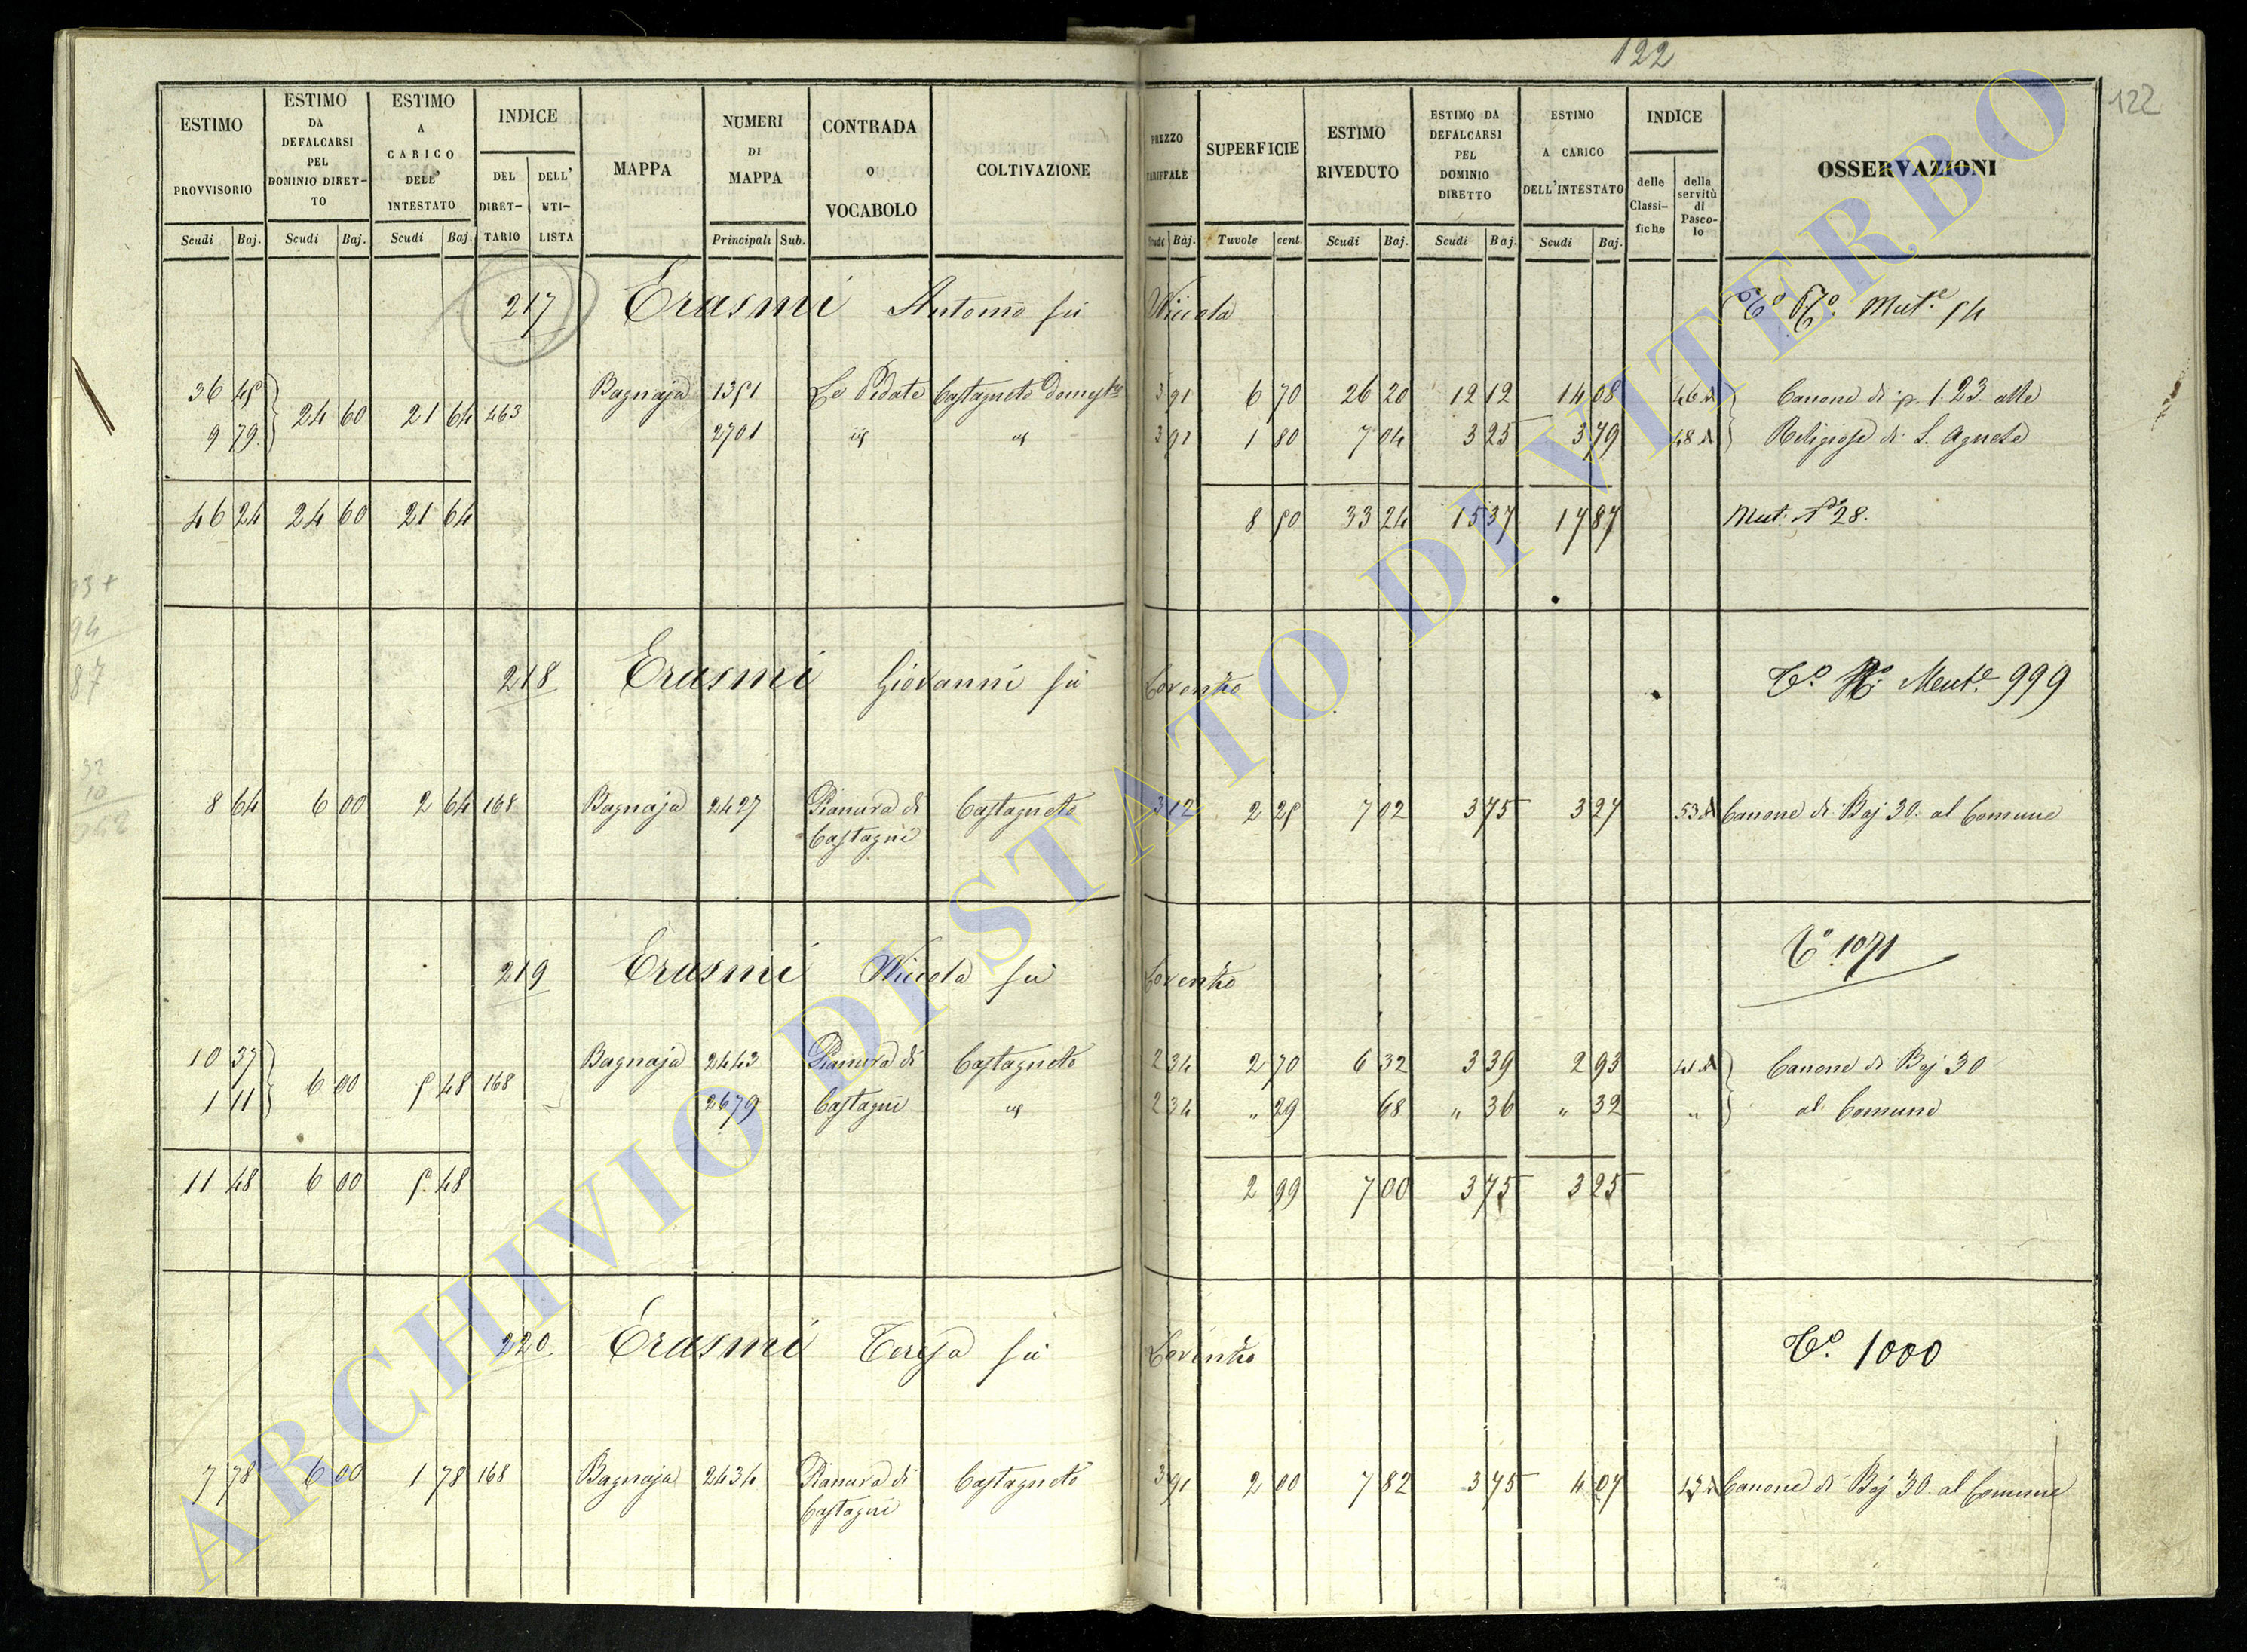 122
122
ESTIMO PROVVISORIO Scudi Baj.
ESTIMO DA DEFALCARSI PEL DOMINIO DIRET-TO Scudi Baj.
ESTIMO A CARICO DELL' INTESTATO Scudi Baj.
INDICE DEL DIRET-TARIO DELL' UTI-LISTA
MAPPA
NUMERI DI MAPPA Principali Sub.
CONTRADA o VOCABOLO
COLTIVAZIONE
PREZZO TARIFFALE Scudi Baj.
SUPERFICIE Tuvole cent.
ESTIMO RIVEDUTO Scudi Baj.
ESTIMO DA DEFALCARSI PEL DOMINIO DIRETTO Scudi Baj.
ESTIMO A CARICO DELL'INTESTATO Scudi Baj.
INDICE delle Classi-fiche della servitù di Pasco-lo
OSSERVAZIONI
217 Erasmi Antonio fù Nicola Mut.e 54
36 45 24 60 21 64 463 Bagnaja 1351 Le Pidate Castagneto Domest.co 3 91 6 70 26 20 12 12 14 08 Canone di 1.23. alle
9 79 2701 id id 3 91 1 80 7 04 3 25 3 79 Religiose di S. Agnese
46 24 24 60 21 64 8 50 33 24 15 37 17 87 Mut. 28.
218 Erasmi Giovanni fù Lorenzo Mut.e 999
8 64 6 00 2 64 168 Bagnaja 2427 Pianura di 3 12 2 25 7 02 3 75 3 27 Canone di Baj 30. al Comune
Castagni Castagneto
219 Erasmi Nicola fù Lorenzo 1071
10 37 6 00 5 48 168 Bagnaja 2443 Pianura di Castagneto 2 34 2 70 6 32 3 39 2 93 Canone di Baj 30
1 11 2679 Castagni id 2 34 " 29 68 " 36 " 32 " al Comune
11 48 6 00 5 48 2 99 7 00 3 75 3 25
220 Erasmi Teresa fù Lorenzo 1000
7 78 6 00 1 78 168 Bagnaja 2434 Pianura di Castagneto 3 91 2 00 7 82 3 75 4 07 Canone di Baj 30 al Comune
Castagni
ARCHIVIO DI STATO DI VITERBO